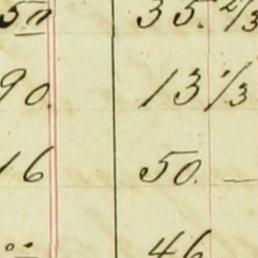 50 35. 2/3
90. 13 1/3
16 50. —
46